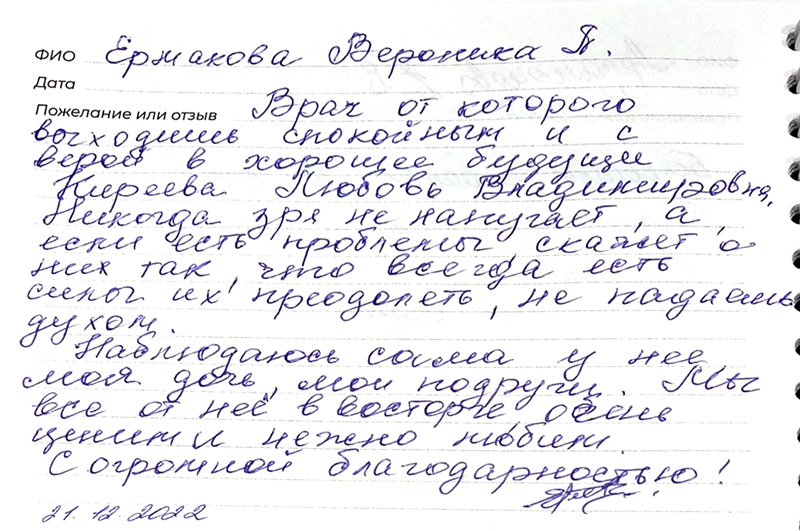 ФИО Ермакова Вероника П.
Дата
Пожелание или отзыв Врач от которого
выходишь спокойным и с
верой в хорошее будущее
Киреева Любовь Владимировна.
Никогда зря не напугает, а,
если есть проблемы скажет о
них так, что всегда есть
силы их преодолеть, не падаешь
духом.
Наблюдаюсь сама у нее
моя дочь, мои подруги. Мы
все от неё в восторге, очень
ценим и нежно любим.
С огромной благодарностью!
21.12.2022